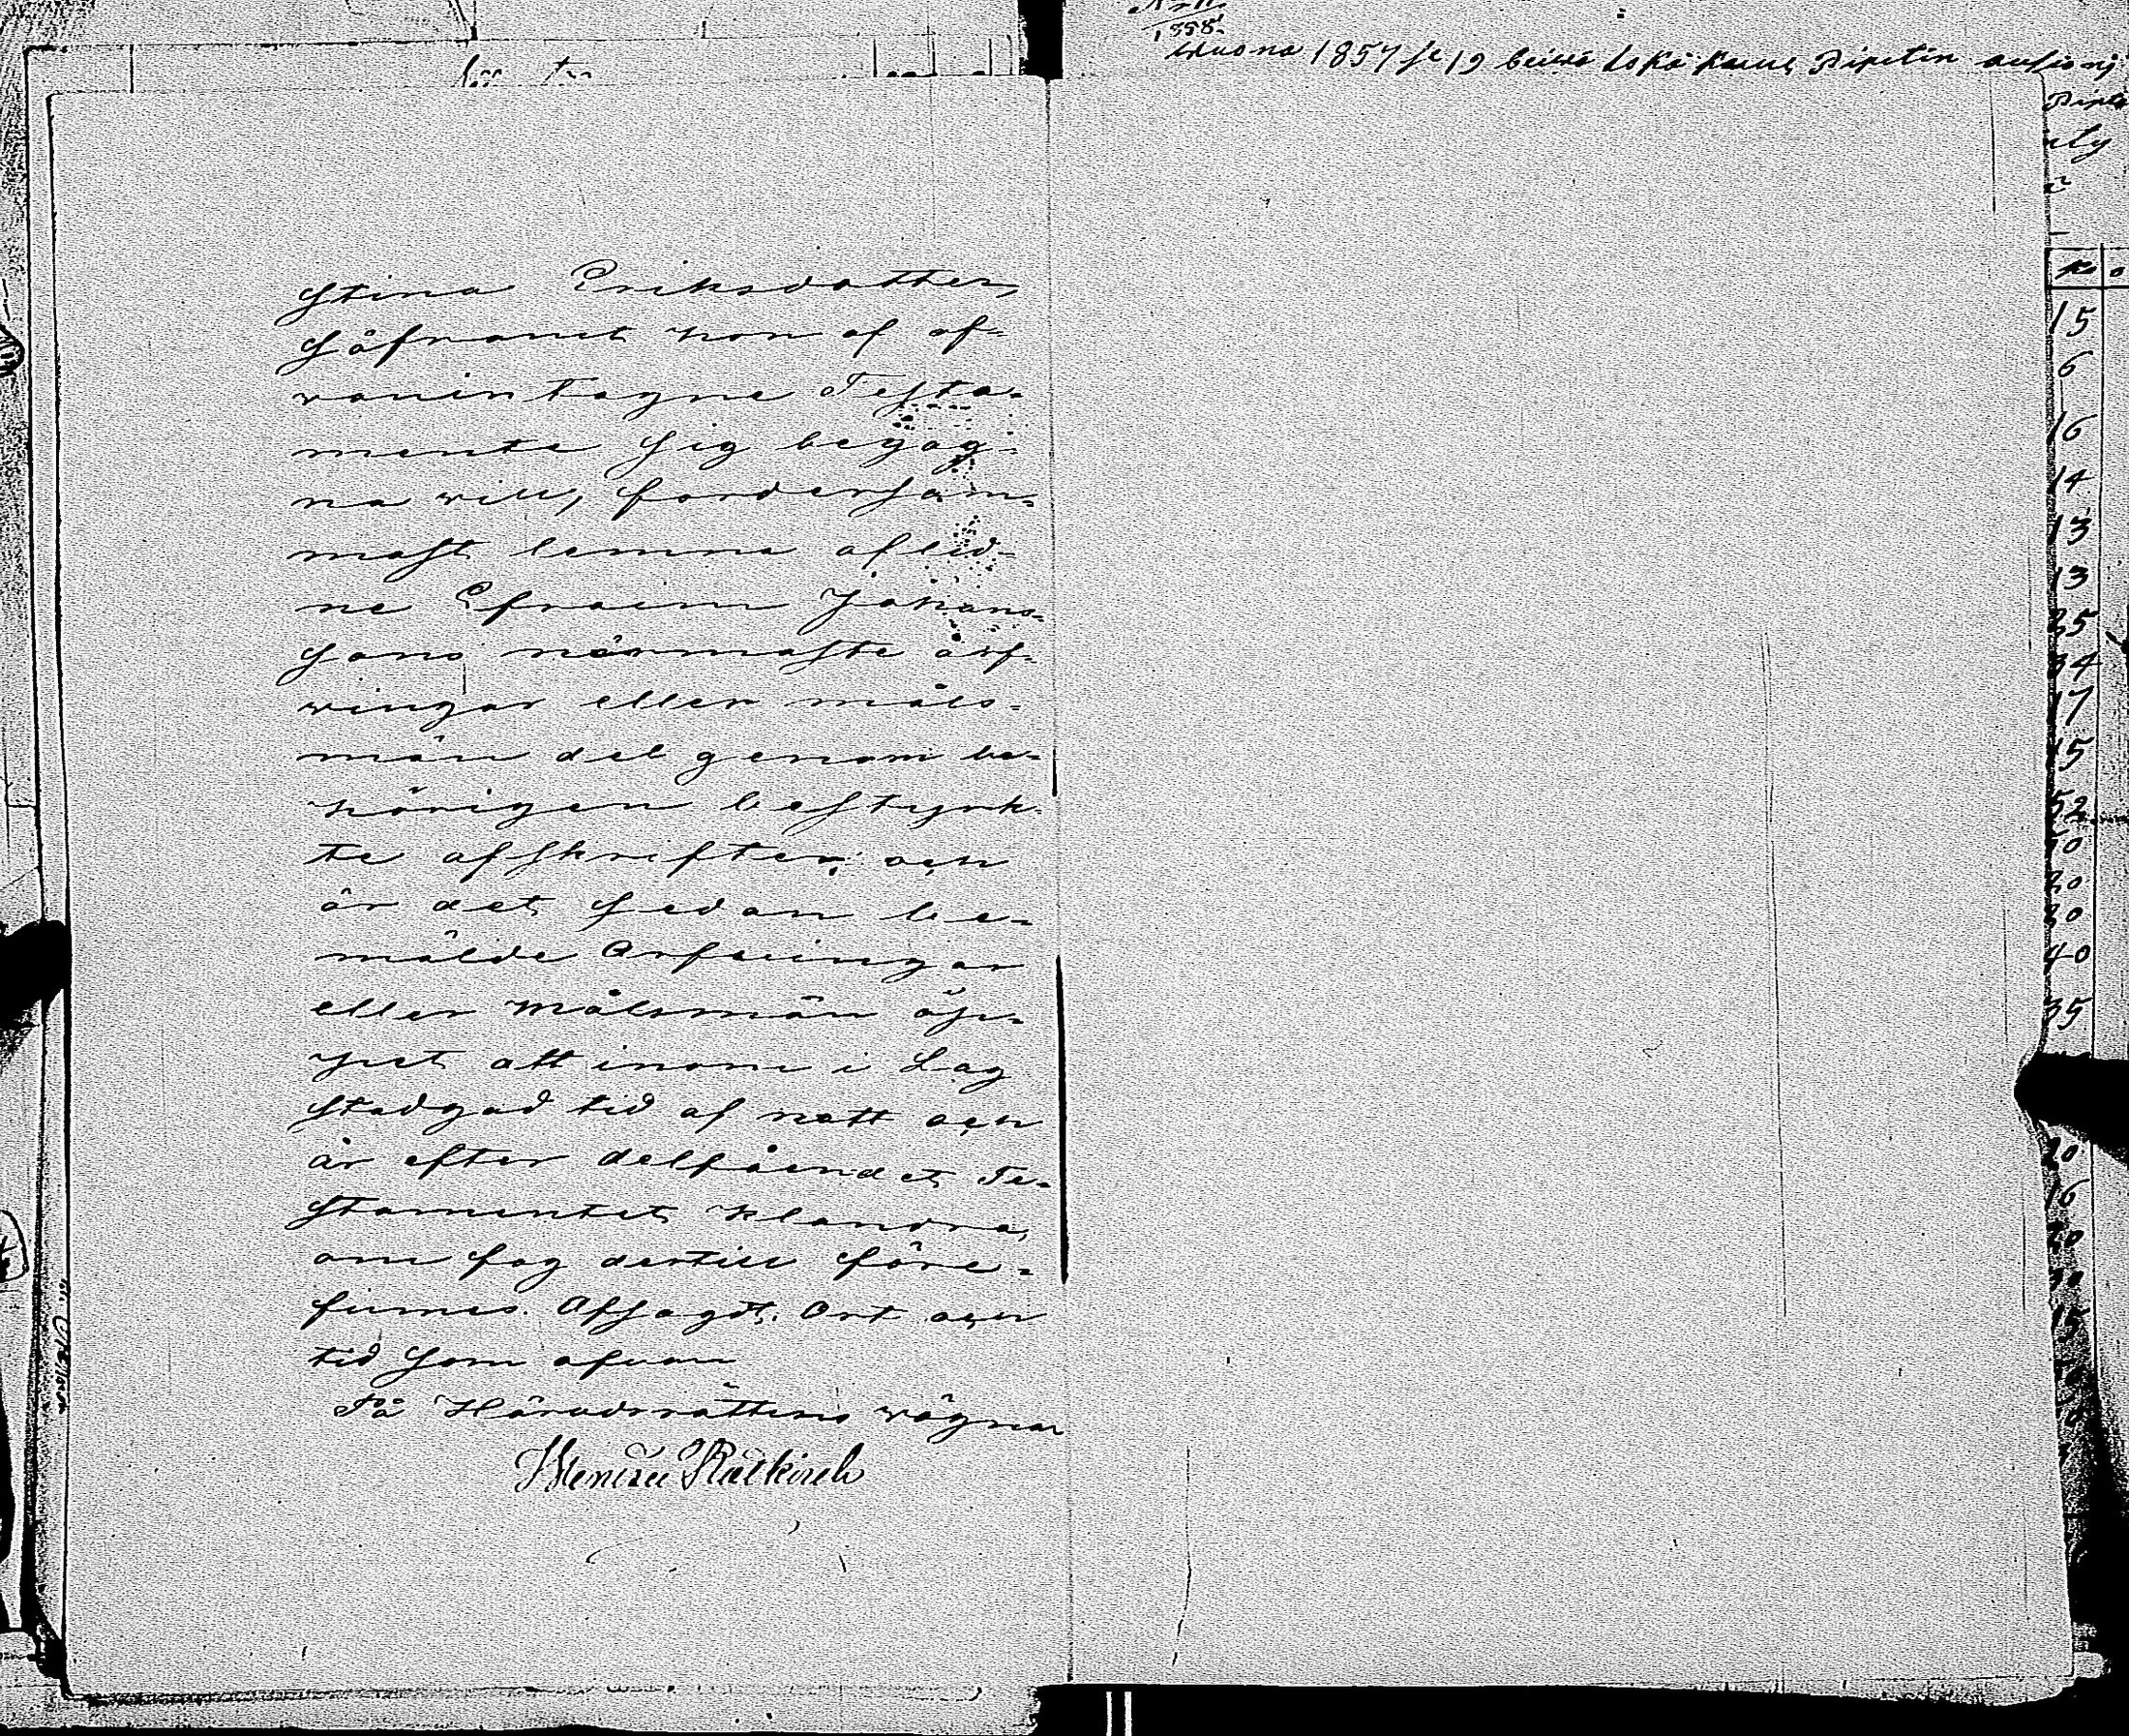 1858.
Wuona 1857 se 19 beiwä loka kuus Pipitin auksioni
Stina Eriksdotter,
såframt hon af of-
vanintagne Testa-
mente sig begag-
na vill, fordersam-
mast lemna aflid-
ne Efraim Johans-
sons närmaste arf-
vingar eller måls-
män del genom be-
hörigen bestyrk-
te afskrifter; och
är det sedan be-
mälde Arfvingar
eller Målsmän öp-
pet att inom i Lag
stadgad tid af natt och
år efter delfåendet Te-
stamentet klandra,
om fog dertill före-
finnes. Afsagdt. Ort och
tid som ofvan
På Häradsrättens vägnar
15
6
16
14
13
13
25
34
17
15
52
10
20
80
40
35
20
16
20
30
15